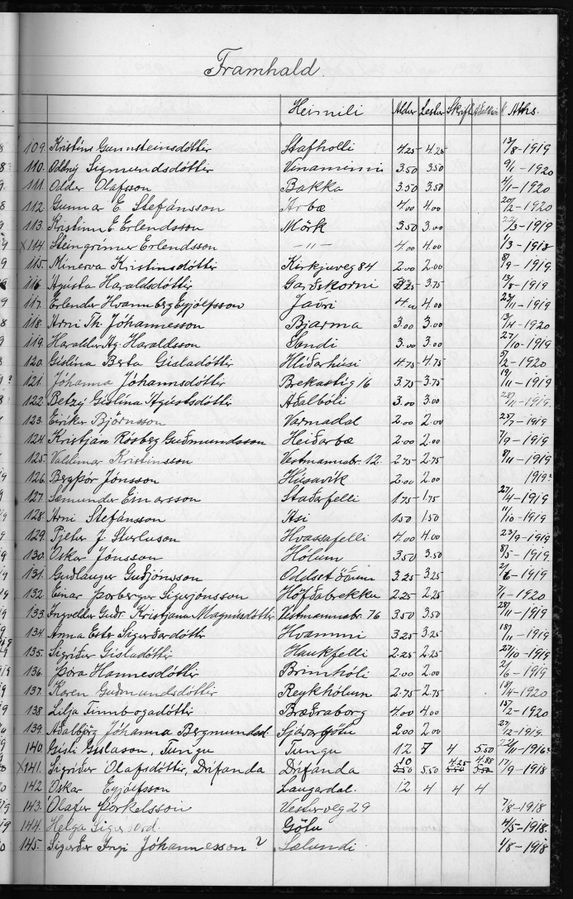 Framhald.
Heimili Aldur Lestur Skrift Aths.
109. Kristins Gunnsteinsdóttir Stafholti 4.25 4.25 13/8-1919
110. Oddný Sigmundsdóttir Vinaminni 3.50 3.50 9/11-1920
111. Oldur Olafsson Bakka 3.50 3.50 4/11-1920
112. Gunnar E. Stefánsson Arbæ 4.00 4.00 20/2-1920
113. Kristinn E Erlendsson Mörk 3.50 3.00 /3-1919
X114. Steingrimur Erlendsson -"- 4.00 4.00 1/3-1918
115. Minerva Kristinsdóttir Kirkjuveg 84 2.00 2.00 8/9-1919
116. Agusta Haraldsdóttir Garðshorni 3.25 13/8-1919
117. Erlendur Hvannberg Eyjólfsson Jaðri 4.00 4.00 22/11-1919
118. Arni Th. Jóhannesson Bjarma 3.00 3.00 9/4-1920
119. Haraldur Ag. Haraldsson Sandi 3.00 3.00 27/10-1919
120. Gislina Berta Gisladóttir Hliðarhúsi 4.75 4.75 5/2-1920
121. Jóhanna Jóhannsdóttir Brekastig 16 3.75 3.75 19/11-1919
122. Betzý Gislina Agustsdóttir Aðalbóli 3.00 3.00 28/11-1919
123. Eirikur Björnsson Varmadal 2.00 2.00 27/7-1919
124. Kristján Rósberg Guðmundsson Heiðarbæ 2.00 2.00 7/9-1919
125. Valdimar Kristinsson Vestmannabr. 12. 2.75 2.75 8/11-1919
126. Bergþór Jónsson Húsavik 2.00 2.00 1919?
127. Sæmundur Einarsson Staðarfelli 1.75 1.75 27/4-1919
128. Arni Stefánsson Asi 1.50 1.50 11/10-1919
129. Pjetur J. Sturluson Hvassafelli 4.00 4.00 23/9-1919
130. Óskar Jónsson Hólum 3.50 3.50 8/5-1919
131. Guðlaugur Guðjónsson Oddsstöðum 3.25 3.25 2/6-1919
132. Einar Þorbergur Sigurjónsson Höfðabrekku 2.25 2.25 7/1-1920
133. Ingveldur Guðr. Kristjana Magnúsdóttir Vestmannabr. 76 3.50 3.50 28/11-1919
134. Anna Ester Sigurðardóttir Hvammi 3.25 3.25 18/11-1919
135. Sigriður Gisladóttir Haukfelli 2.25 2.25 27/10-1919
136. Þora Hannesdóttir Brimhóli 2.00 2.00 2/6-1919
137. Karen Guðmundsdóttir Reykhólum 2.75 2.75 18/4-1920
138. Lilja Finnbogadóttir Bræðraborg 4.00 4.00 13/2-1920
139. Aðalbjörg Jóhanna Bergmundsd. Sjávargötu 2.00 2.00 27/2-1919
140. Gisli Gislason, Tungu Tungu 12 7 4 5.50 /11-1916
X141. Sigriður Olafsdóttir, Drifanda Drifanda 10 5.50 4.25 4.88 17/9-1918
142. Oskar Eyjólfsson Laugardal 12 4 4 4
143. Olafur Þorkelsson Vesturveg 29 7/8-1918
144. Helga Sigurðard. Götu 4/5-1918
145. Sigurður Ingi Jóhannesson? Sælundi 1/8-1918